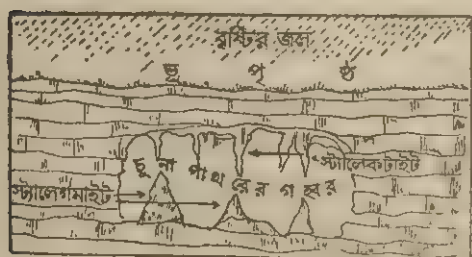 বৃষ্টির জল
ভূ পৃ ষ্ঠ
স্ট্যালেকটাইট
চু না পাথ রের গ হ্বর
স্ট্যালেগমাইট